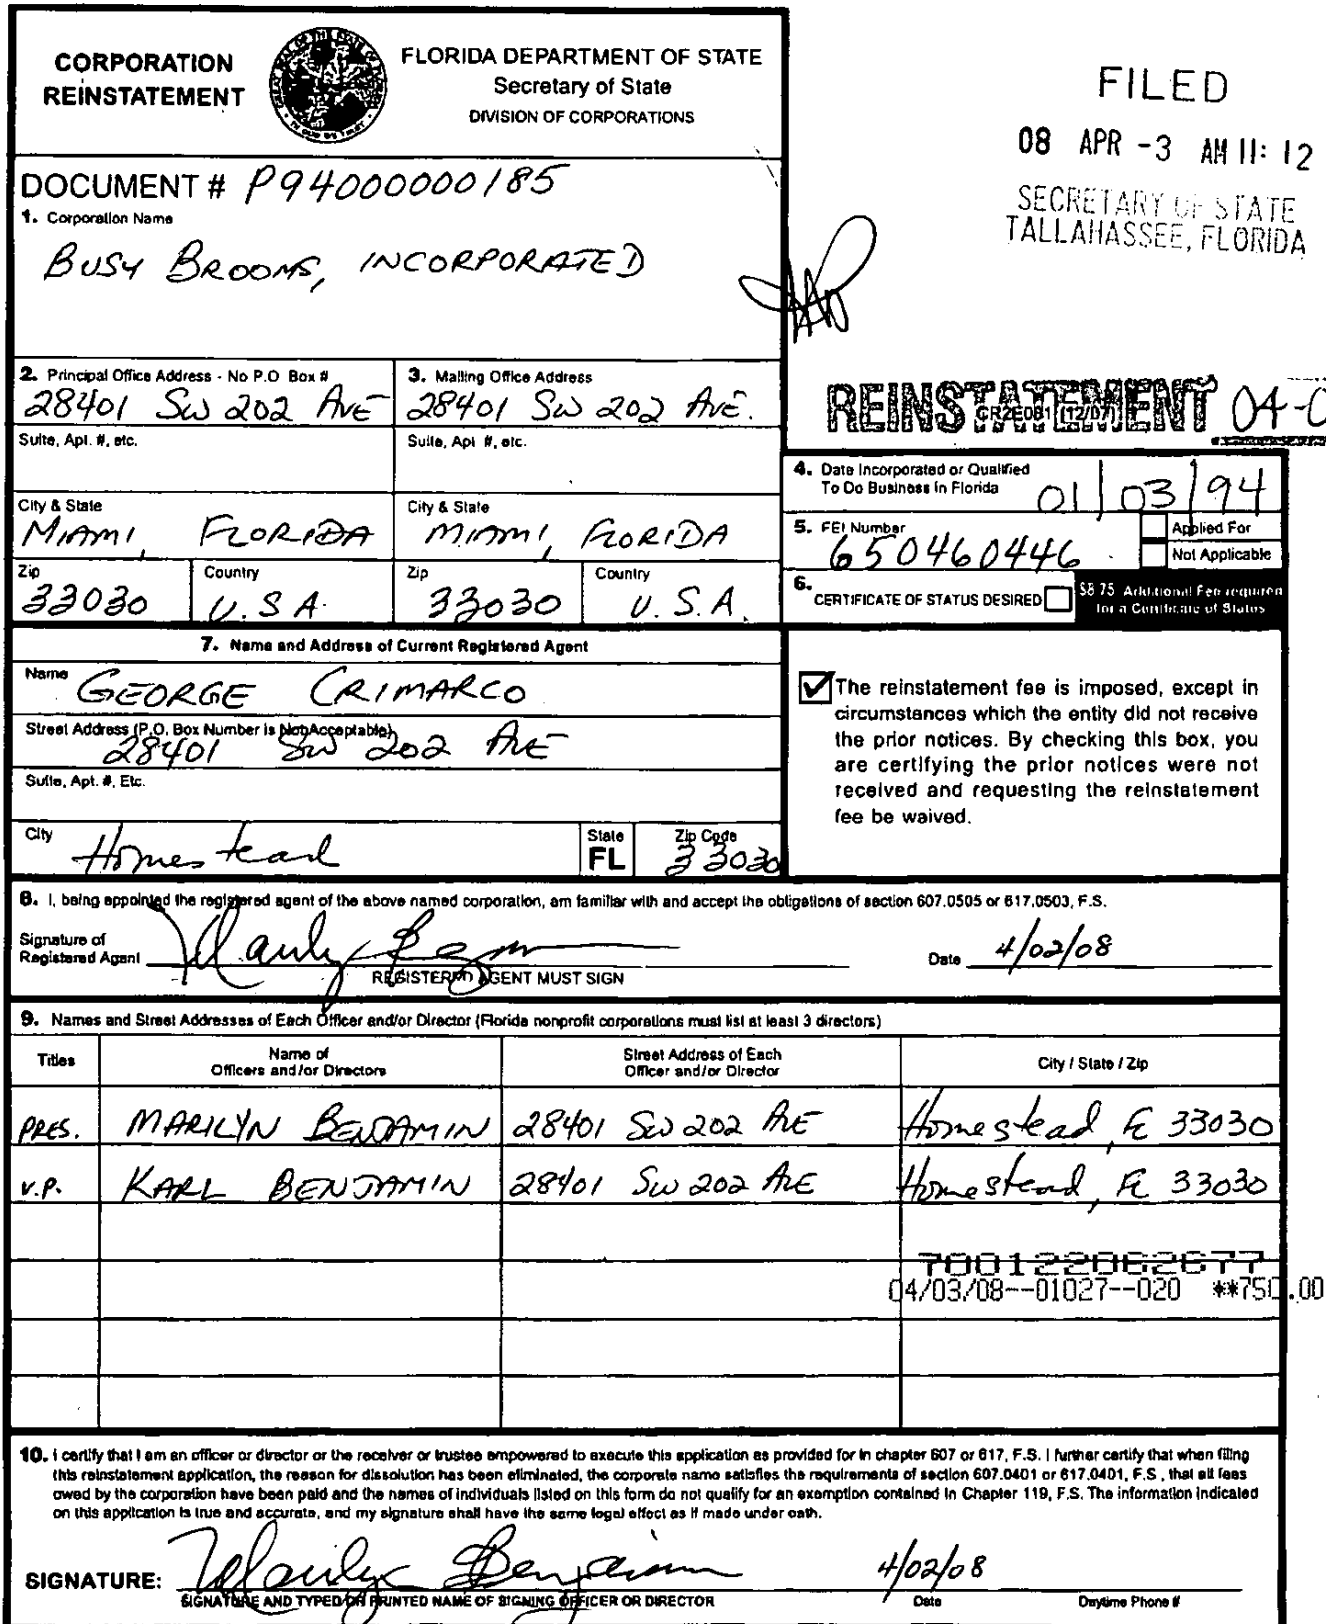 CORPORATION
REINSTATEMENT
FLORIDA DEPARTMENT OF STATE
Secretary of State
DIVISION OF CORPORATIONS
FILED
08 APR -3 AM 11: 12
SECRETARY OF STATE
TALLAHASSEE, FLORIDA
DOCUMENT # P94000000185
1. Corporation Name
BUSY BROOMS, INCORPORATED
2. Principal Office Address - No P.O Box #
28401 SW 202 AVE
3. Mailing Office Address
28401 SW 202 AVE.
Suite, Apt. #, etc.
Suite, Apt #, etc.
City & State
MIAMI, FLORIDA
City & State
MIAMI, FLORIDA
Zip
33030
Country
U.S.A.
Zip
33030
Country
U.S.A.
REINSTATEMENT 04-0
CR2E081 (12/07)
4. Date Incorporated or Qualified
To Do Business in Florida
01/03/94
5. FEI Number
650460446
Applied For
Not Applicable
6. CERTIFICATE OF STATUS DESIRED
$8.75 Additional Fee required
for a Certificate of Status
7. Name and Address of Current Registered Agent
Name
GEORGE CRIMARCO
Street Address (P.O. Box Number is Not Acceptable)
28401 SW 202 AVE
Suite, Apt. #, Etc.
City
Homestead
State
FL
Zip Code
33030
The reinstatement fee is imposed, except in
circumstances which the entity did not receive
the prior notices. By checking this box, you
are certifying the prior notices were not
received and requesting the reinstatement
fee be waived.
8. I, being appointed the registered agent of the above named corporation, am familiar with and accept the obligations of section 607.0505 or 617.0503, F.S.
Signature of
Registered Agent
REGISTERED AGENT MUST SIGN
Date 4/02/08
9. Names and Street Addresses of Each Officer and/or Director (Florida nonprofit corporations must list at least 3 directors)
Titles
Name of
Officers and/or Directors
Street Address of Each
Officer and/or Director
City / State / Zip
PRES. MARILYN BENJAMIN 28401 SW 202 AVE Homestead, FL 33030
V.P. KARL BENJAMIN 28401 SW 202 AVE Homestead, FL 33030
700122062677
04/03/08--01027--020 **750.00
10. I certify that I am an officer or director or the receiver or trustee empowered to execute this application as provided for in chapter 607 or 617, F.S. I further certify that when filing
this reinstatement application, the reason for dissolution has been eliminated, the corporate name satisfies the requirements of section 607.0401 or 617.0401, F.S , that all fees
owed by the corporation have been paid and the names of individuals listed on this form do not qualify for an exemption contained in Chapter 119, F.S. The information indicated
on this application is true and accurate, and my signature shall have the same legal effect as if made under oath.
SIGNATURE: Marilyn Benjamin 4/02/08
SIGNATURE AND TYPED OR PRINTED NAME OF SIGNING OFFICER OR DIRECTOR
Date
Daytime Phone #